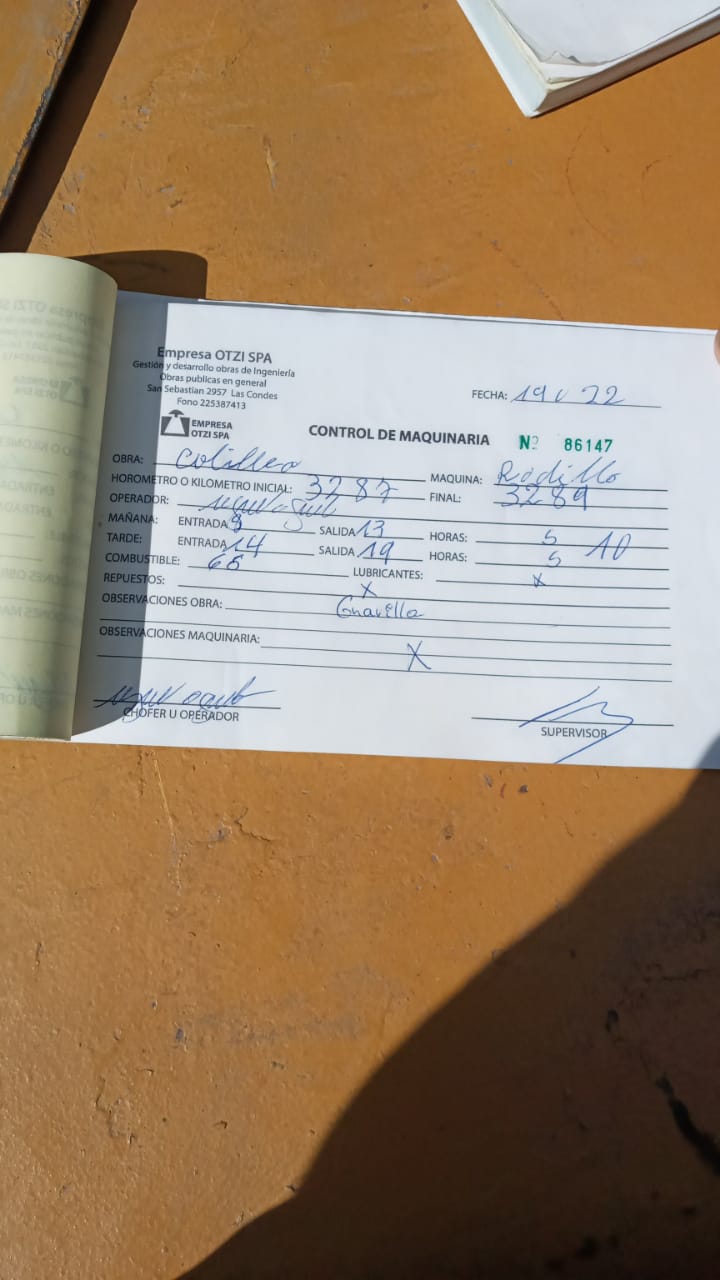 Empresa OTZI SPA
Gestión y desarrollo obras de Ingeniería
Obras publicas en general
San Sebastian 2957 Las Condes
Fono 225387413
EMPRESA
OTZI SPA
FECHA: 22
CONTROL DE MAQUINARIA Nº 86147
OBRA: MAQUINA: Rodillo
HOROMETRO O KILOMETRO INICIAL: 3287 FINAL: 3289
OPERADOR:
MAÑANA: ENTRADA 9 SALIDA 13 HORAS: 5 10
TARDE: ENTRADA 14 SALIDA 19 HORAS: 5
COMBUSTIBLE: LUBRICANTES: x
REPUESTOS: X
OBSERVACIONES OBRA: Gravilla
OBSERVACIONES MAQUINARIA:
X
CHOFER U OPERADOR SUPERVISOR